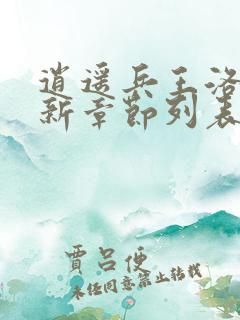 逍遥兵王洛
新章节列表
贾吕便
未经同意禁止转载